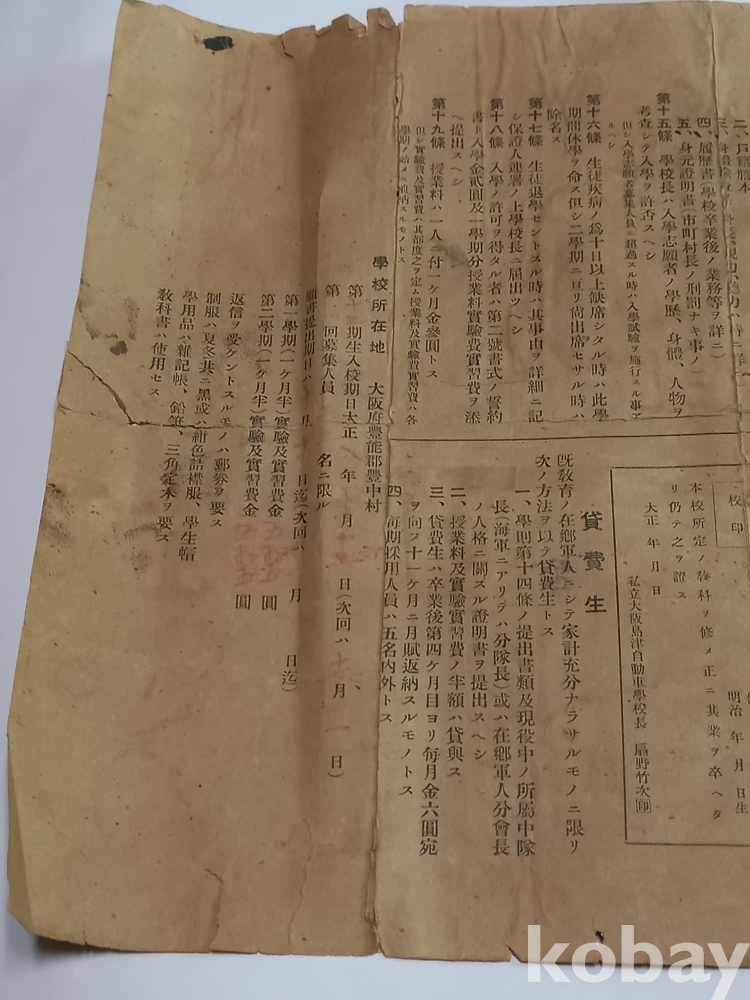 二、戶籍謄本
四、履歷書(學校卒業後ノ業務等ヲ詳ニ)
五、身元證明書(市町村長ノ刑罰ナキ事ノ)
第十五條 學校長ハ入學志願者ノ學歷、身體、人物ヲ
考査シテ入學ヲ許否スヘシ
但シ入學志願者募集人員ニ超過スル時ハ入學試驗ヲ施行スル事ア
ルヘシ
第十六條 生徒疾病ノ爲十日以上缺席シタル時ハ此學
期間休學ヲ命ス但シ二學期ニ亘リ尚出席セサル時ハ
除名ス
第十七條 生徒退學セントスル時ハ其事由ヲ詳細ニ記
シ保證人連署ノ上學校長ニ屆出ツヘシ
第十八條 入學ノ許可ヲ得タル者ハ第二號書式ノ誓約
書ト入學金貳圓及一學期分授業料實驗費實習費ヲ添
ヘ提出スヘシ
第十九條 授業料ハ一人ニ付一ケ月金參圓トス
但シ實驗費及實習費ハ其都度之ヲ定ム授業料及實驗費實習費ハ各
學期ノ始メニ前納スルモノトス
學校所在地 大阪府豐能郡豐中村
第 期生入校期日大正 年 月 日(次回ハ 月一日)
第 回募集人員 名ニ限ル
願書提出期日ハ 月 日迄(次回ハ 月 日迄)
第一學期(一ケ月半)實驗及實習費金 圓
第二學期(一ケ月半)實驗及實習費金 圓
返信ヲ受ケントスルモノハ郵劵ヲ要ス
制服ハ夏冬共ニ黑或ハ紺色詰襟服、學生帽
學用品ハ雜記帳、鉛筆、三角定木ヲ要ス
敎科書ハ使用セス
校印
明治 年 月 日生
本校所定ノ敎科ヲ修メ正ニ其業ヲ卒ヘタ
リ仍テ之ヲ證ス
大正 年 月 日
私立大阪島津自動車學校長 扇野竹次 印
貸費生
旣敎育ノ在鄕軍人ニシテ家計充分ナラサルモノニ限リ
次ノ方法ヲ以テ貸費生トス
一、學則第十四條ノ提出書類及現役中ノ所屬中隊
長(海軍ニアリテハ分隊長)或ハ在鄕軍人分會長
ノ人格ニ關スル證明書ヲ提出スヘシ
二、授業料及實驗實習費ノ半額ハ貸與ス
三、貸費生ハ卒業後第四ケ月目ヨリ每月金六圓宛
ヲ向フ十一ケ月ニ月賦返納スルモノトス
四、每期採用人員ハ五名內外トス
kobay